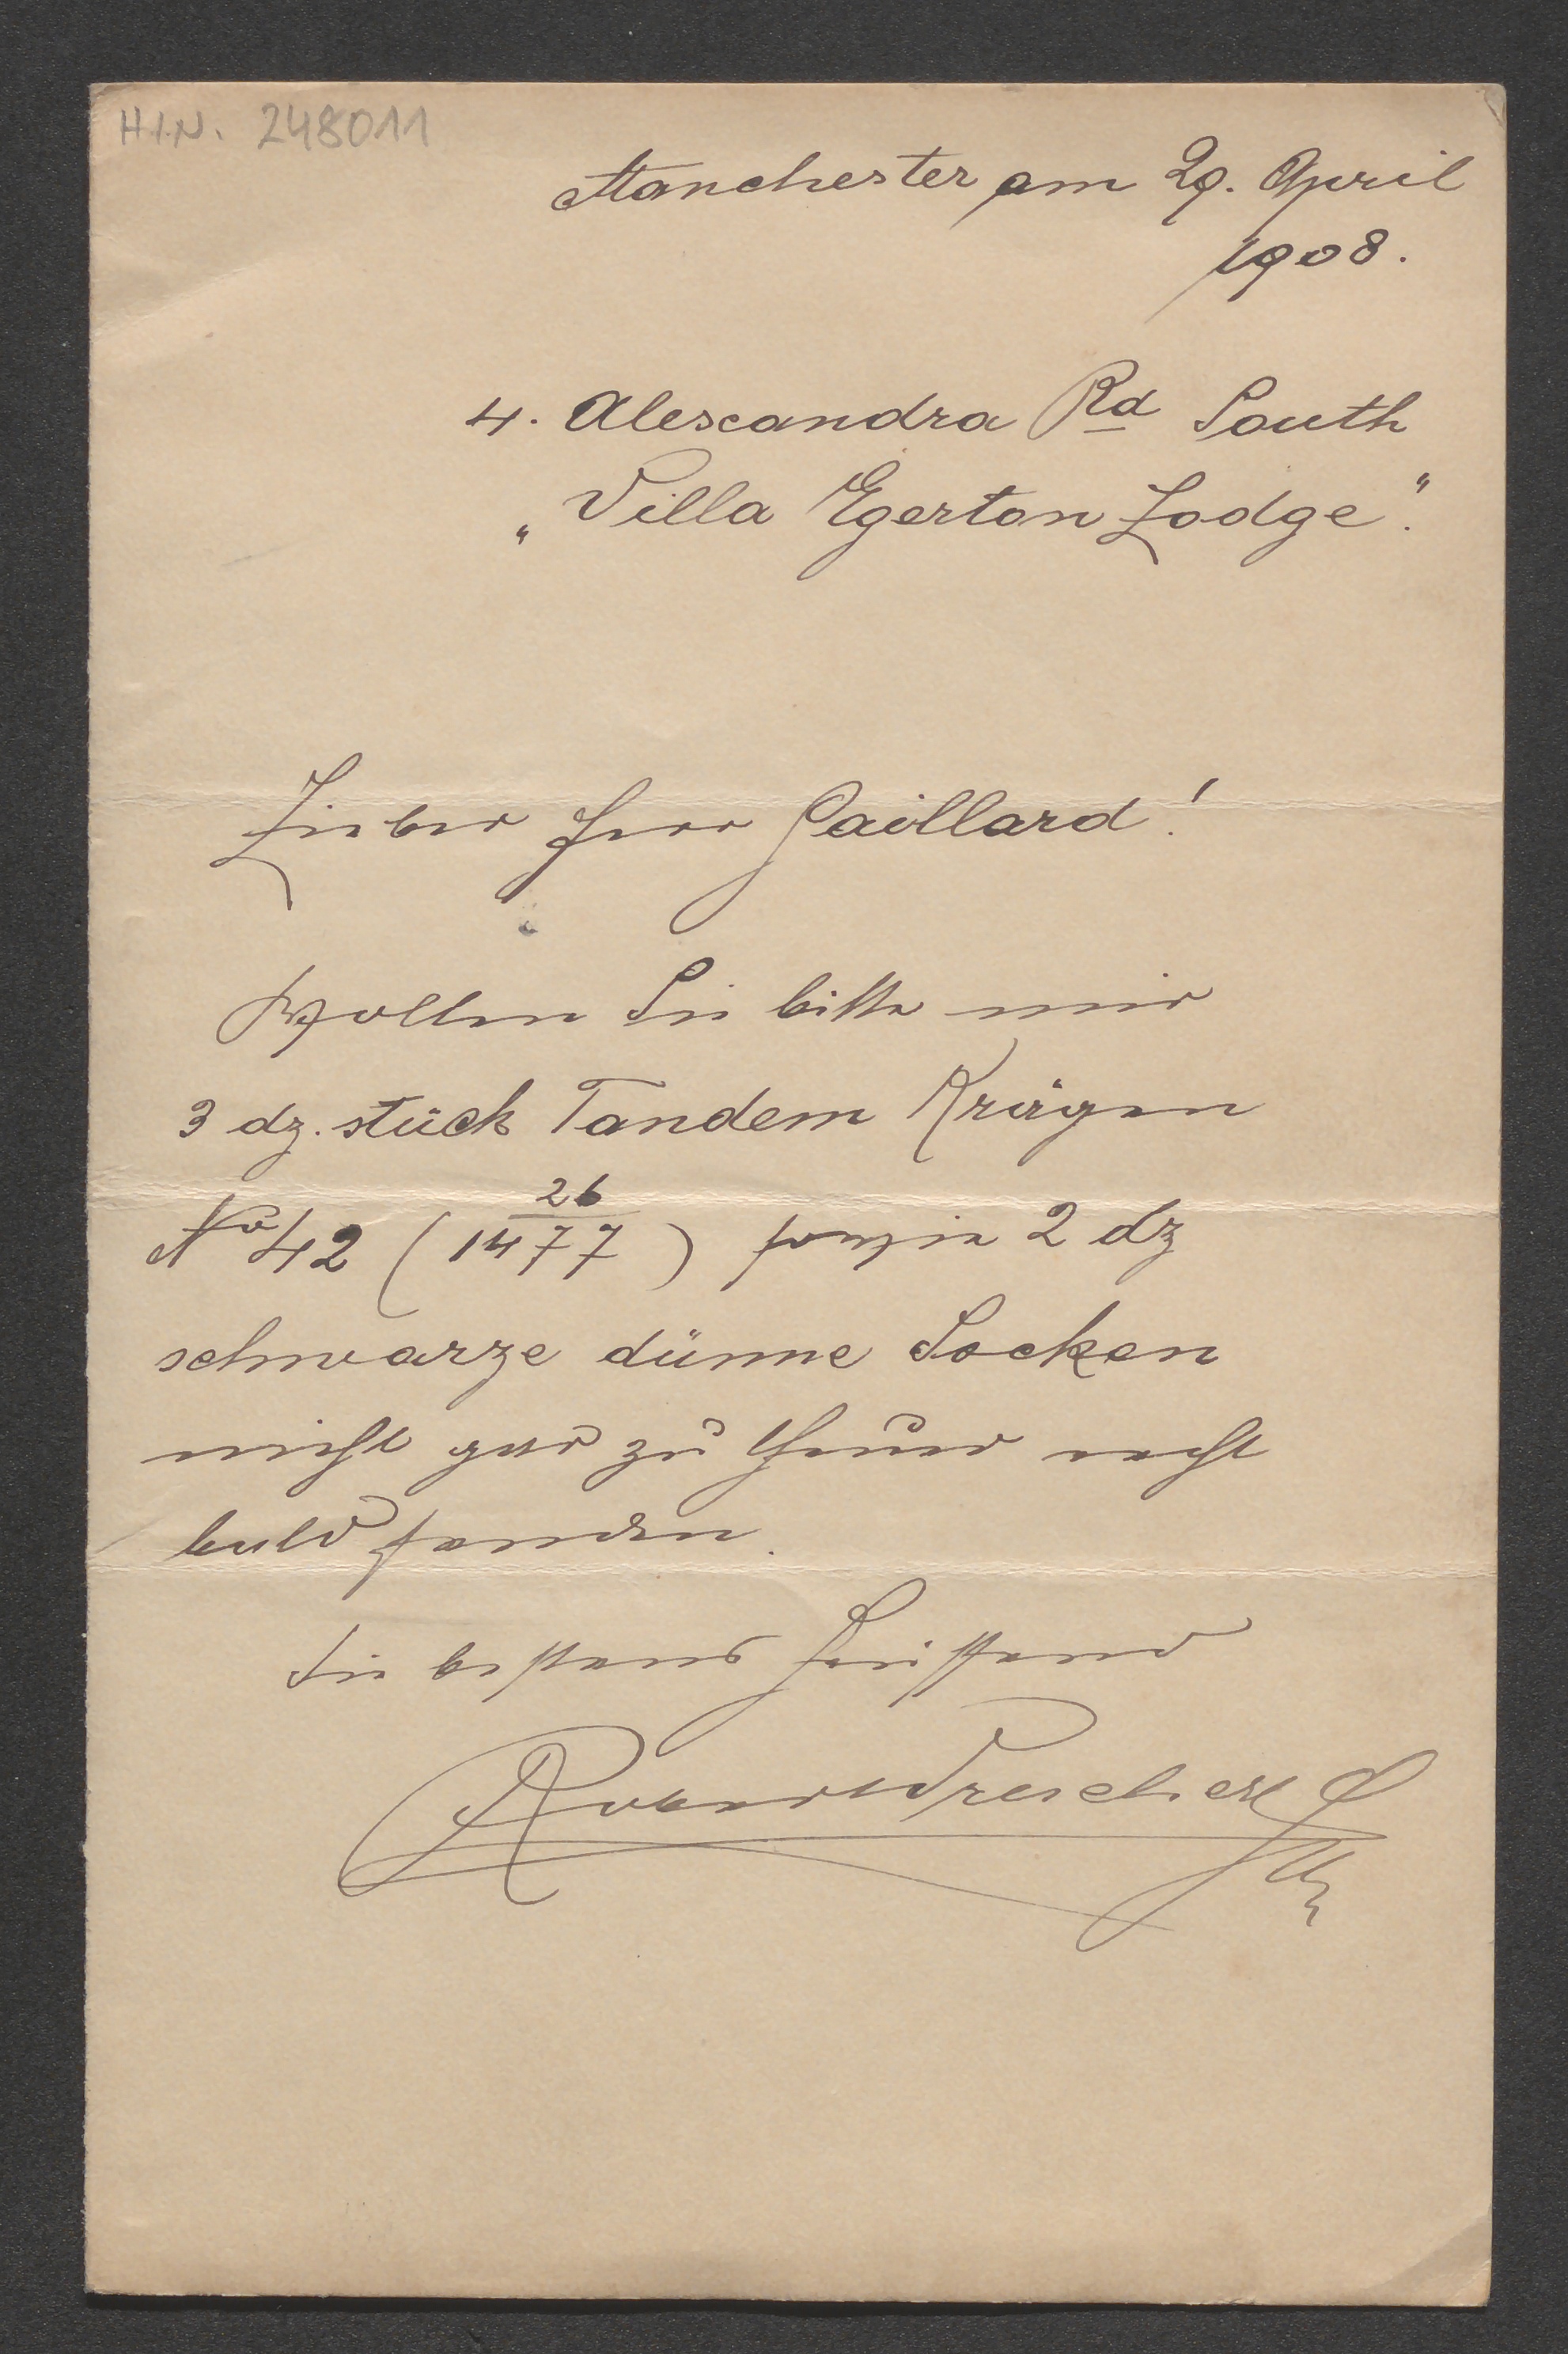 H.I.N. 248011
Manchester am 29. April
1908.
4. Alexandra Rd South
„Villa Egerton Lodge".
Lieber Herr Paillard!
Wollen Sie bitte mir
3 dz. stück Tandem Krägen
No 42 (26/1477) sowie 2 dz
schwarze dünne Socken
nicht gar zu theuer recht
bald senden.
Sie bestens